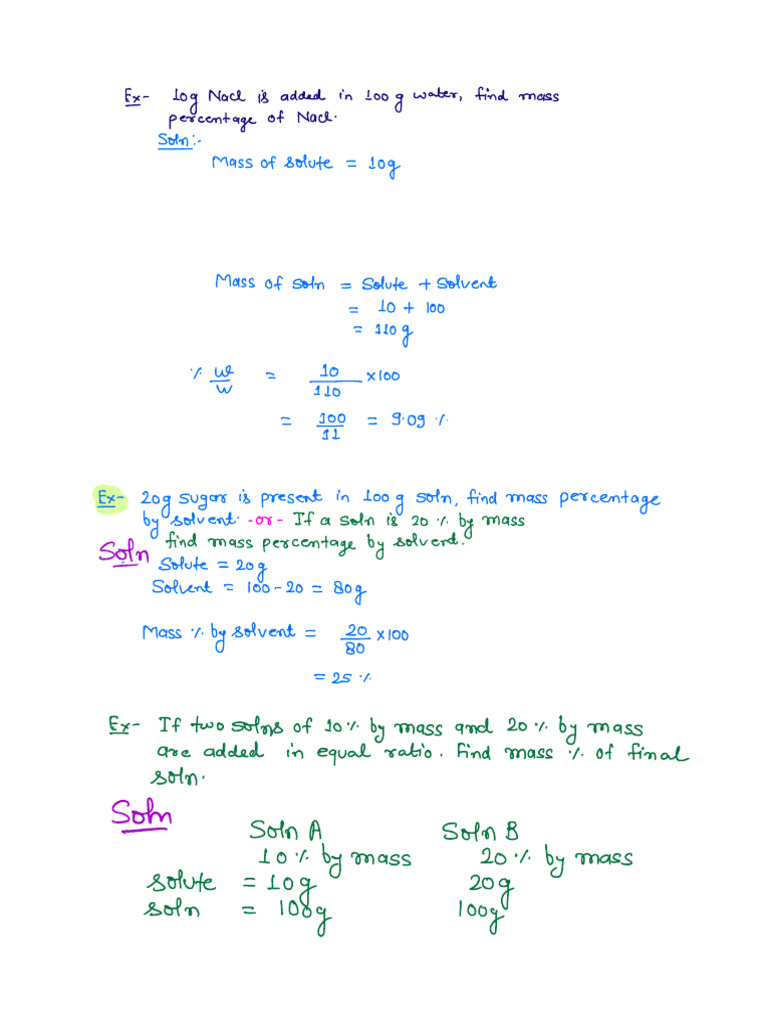 Ex- 10g Nacl is added in 100 g water, find mass
percentage of Nacl.
Soln:-
Mass of solute = 10g
Mass of soln = Solute + Solvent
= 10 + 100
= 110g
% W/W = 10/110 ×100
= 100/11 = 9.09 %
Ex- 20g sugar is present in 100 g soln, find mass percentage
by solvent. -or- If a soln is 20 % by mass
find mass percentage by solvent.
Soln
Solute = 20g
Solvent = 100-20 = 80g
Mass % by solvent = 20/80 ×100
= 25 %
Ex- If two solns of 10% by mass and 20 % by mass
are added in equal ratio. Find mass % of final
soln.
Soln
Soln A Soln B
10% by mass 20% by mass
solute = 10g 20g
soln = 100g 100g